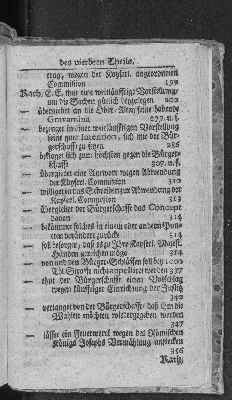 des vierdten Theils.
trag, wegen der Keyserl. angeordneten
Commißion 199
Rath, E. E. thut eine weitläufftige Vorstellung
um die Sachen gütlich beyzulegen 202
— übergiebet an die Ober-Alten seine habende
Gravamina 277. u. f.
— bezeuget in einer weitläufftigen Vorstellung
seine gute Intention, sich mit der Bür-
gerschafft zu setzen 286
— beklaget sich zum höchsten gegen die Bürger-
schafft 307. u. f.
— übergiebet eine Antwort wegen Abwendung
der Keyserl. Commißion 310
— williget in das Schreiben zu Abwendung der
Keyserl. Commißion 313
— übergiebet der Bürgerschafft das Concept
davon 314
— bekömmt solches in einem oder andern Pun-
cten verändert zurücke 314
— soll besorgen, daß es zu Ihro Keyserl. Majest.
Händen gereichen möge 314
— von und von Bürger-Schlüssen soll bey 1000
Thl. Straffe nicht appelliret werden 337
— thut der Bürgerschafft einen Vorschlag
wegen künfftiger Einrichtung der Justitz
340
— verlanget von der Bürgerschafft daß ihm die
Wahlen möchten wiedergegeben werden
347
— lässet ein Feuerwerck wegen des Römischen
Königs Josephs Vermählung anstecken
356
Rath,